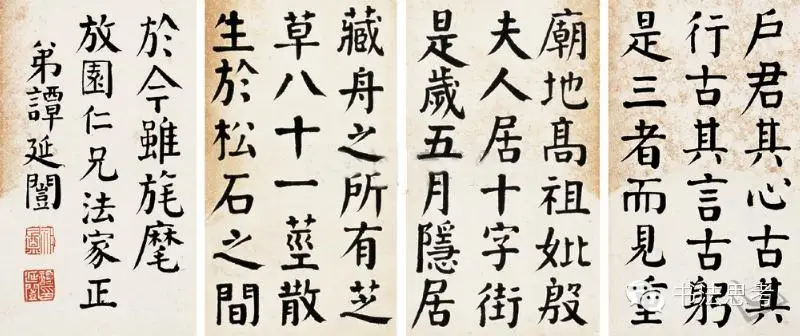 户君其心古其
行古其言古躬
是三者而見重
廟地高祖妣殷
夫人居十字街
是歲五月隱居
藏舟之所有芝
草八十一莖散
生於松石之間
於今雖旄麾
放園仁兄法家正
弟譚延闓
书法思考